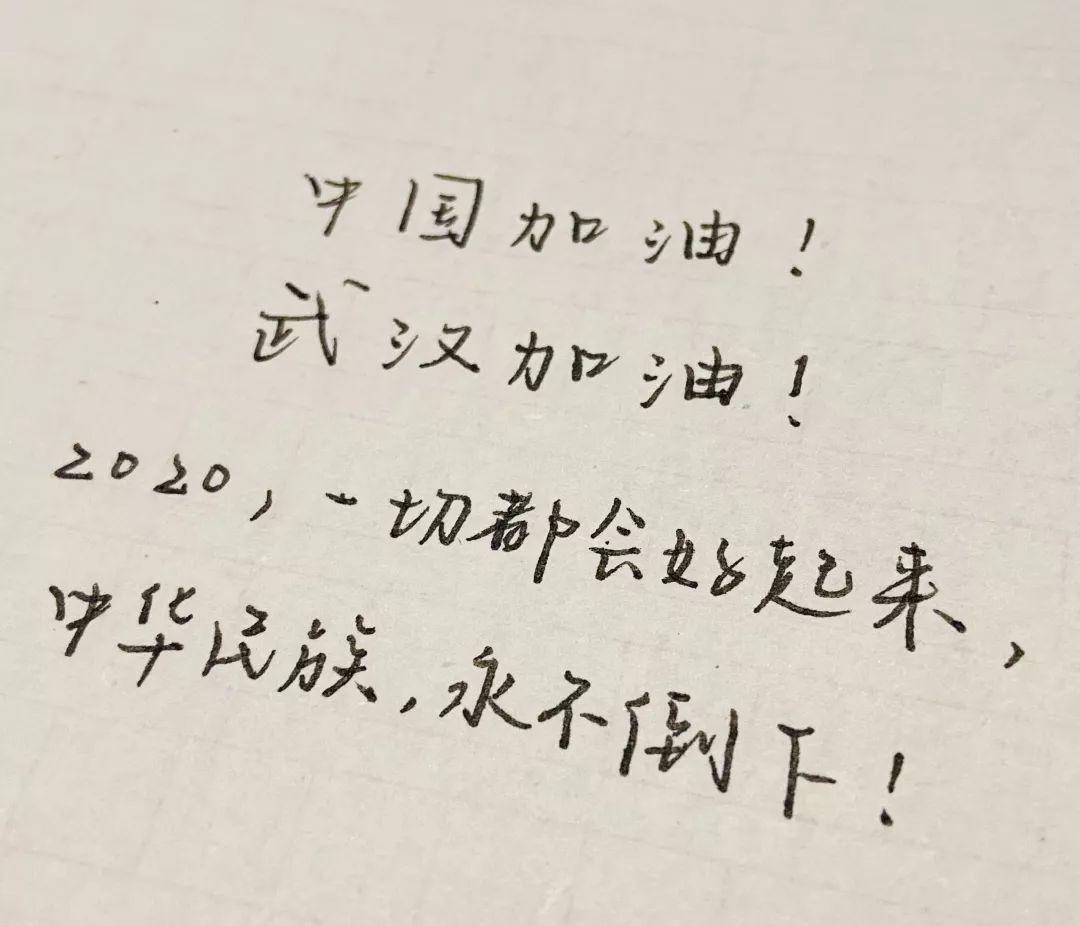 中国加油!
武汉加油!
2020,一切都会好起来,
中华民族,永不倒下!